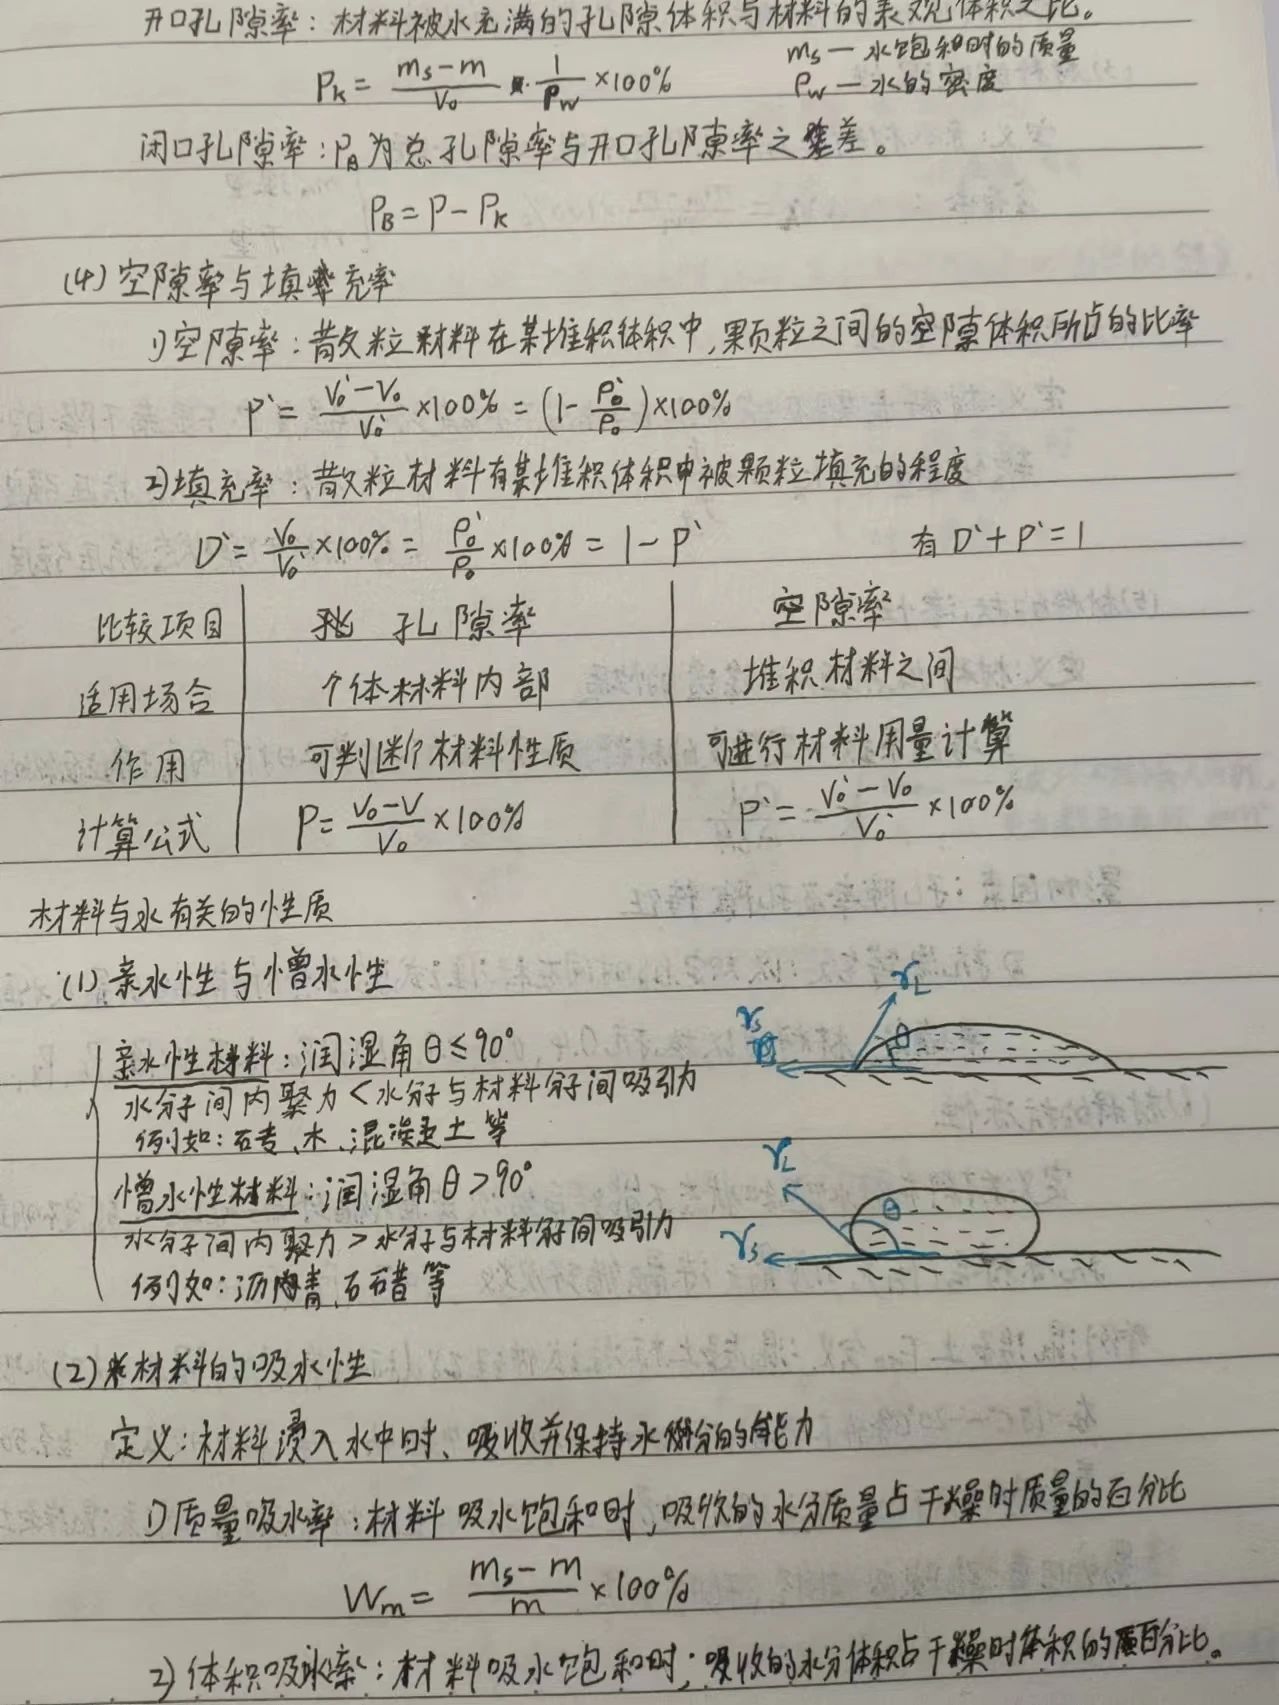 开口孔隙率：材料被水充满的孔隙体积与材料的表观体积之比。
Pk = (ms-m)/V0 · 1/ρw ×100%
ms — 水饱和时的质量
ρw — 水的密度
闭口孔隙率：PB为总孔隙率与开口孔隙率之差。
PB = P - Pk
(4) 空隙率与填充率
1) 空隙率：散粒材料在某堆积体积中，颗粒之间的空隙体积所占的比率
P' = (V0'-V0)/V0' ×100% = (1- ρ0'/ρ0)×100%
2) 填充率：散粒材料有某堆积体积中被颗粒填充的程度
D' = V0/V0' ×100% = ρ0'/ρ0 ×100% = 1-P' 有 D'+P'=1
比较项目 孔隙率 空隙率
适用场合 个体材料内部 堆积材料之间
作用 可判断材料性质 可进行材料用量计算
计算公式 P = (V0-V)/V0 ×100% P' = (V0'-V0)/V0' ×100%
材料与水有关的性质
(1) 亲水性与憎水性
亲水性材料：润湿角θ≤90°
水分子间内聚力<水分子与材料分子间吸引力
例如：砖、木、混凝土等
憎水性材料：润湿角θ>90°
水分子间内聚力>水分子与材料分子间吸引力
例如：沥青、石蜡等
γL
γS
θ
γL
γS
θ
(2) 材料的吸水性
定义：材料浸入水中时、吸收并保持水分的能力
1) 质量吸水率：材料吸水饱和时，吸收的水分质量占干燥时质量的百分比
Wm = (ms-m)/m ×100%
2) 体积吸水率：材料吸水饱和时；吸收的水分体积占干燥时体积的百分比。